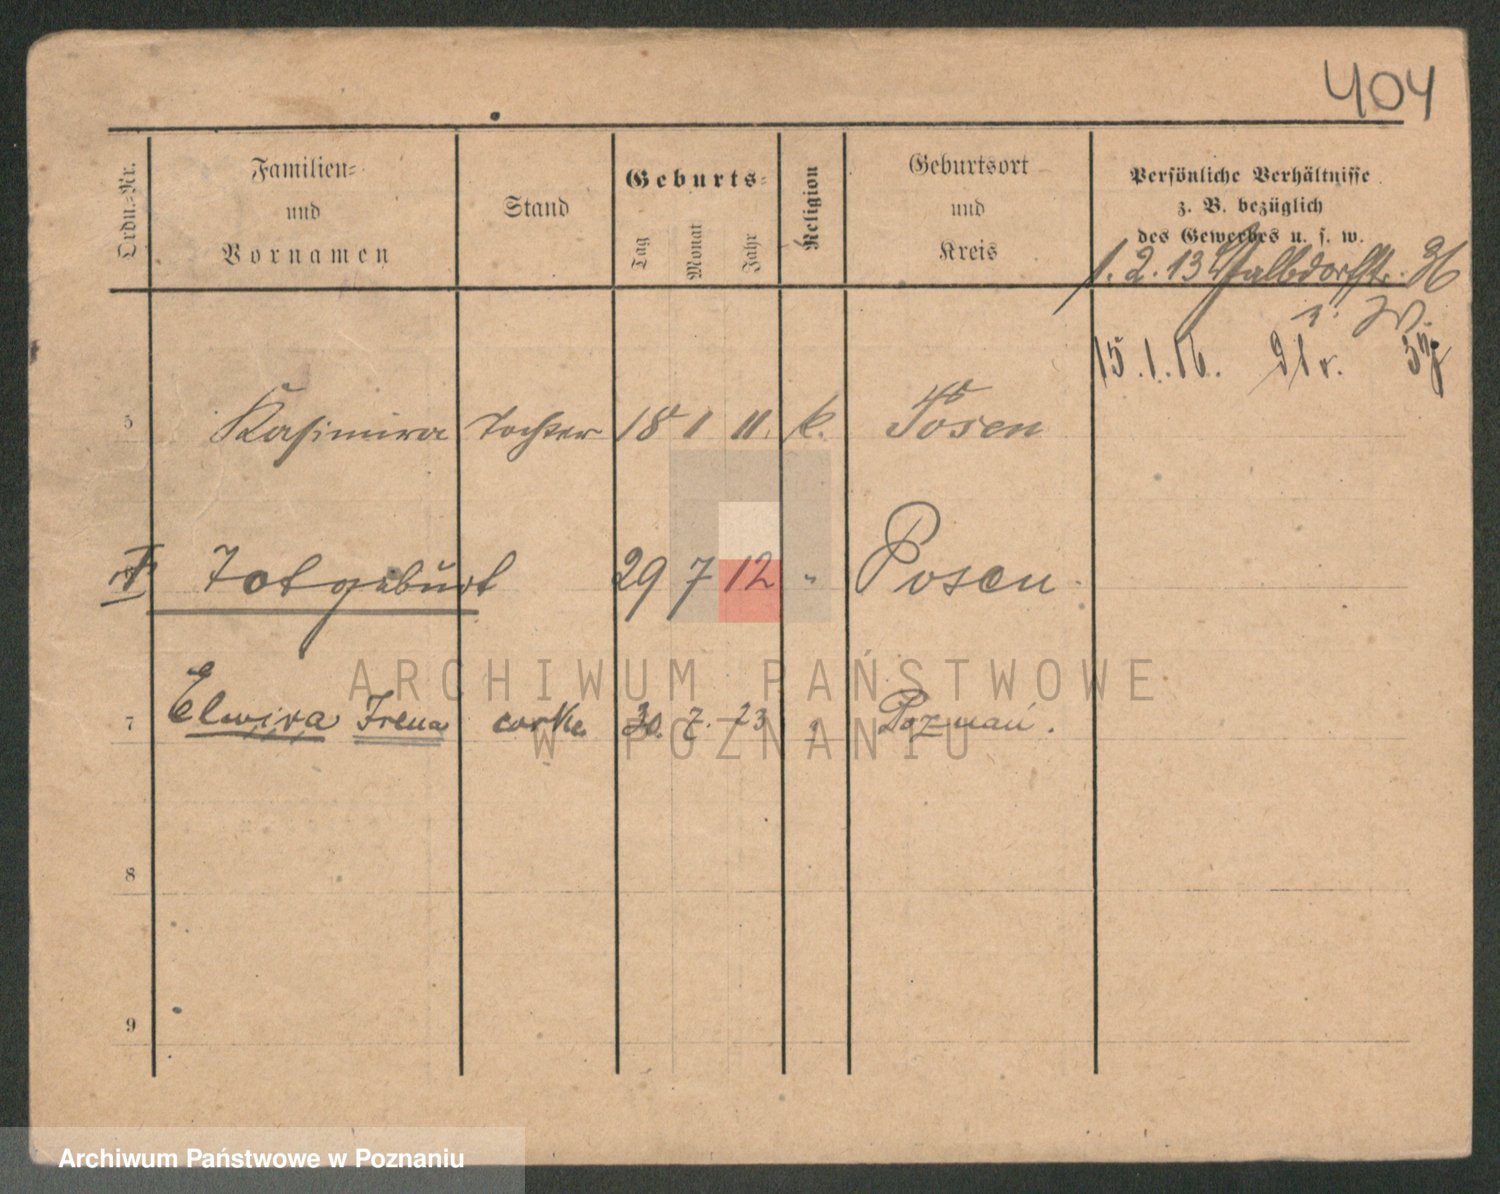 404
Ordn.-Nr.
Familien-
und
Vornamen
Stand
Geburts-
Tag
Monat
Jahr
Religion
Geburtsort
und
Kreis
Persönliche Verhältnisse
z. B. bezüglich
des Gewerbes u. s. w.
1. 2. 13
15. 1. 16.
5 Kasimira Tochter 18 1 11. k. Posen
Totgeburt 29 7 12 " Posen
7 Elwira Irena corka 30. 7. 23 " Poznań.
8
9
ARCHIWUM PAŃSTWOWE
W POZNANIU
Archiwum Państwowe w Poznaniu